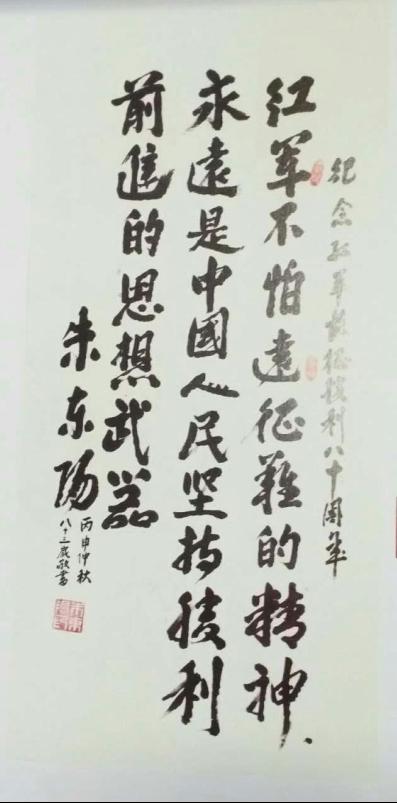 纪念红军长征胜利八十周年
红军不怕遠征难的精神、
永遠是中國人民坚持胜利
前進的思想武器
朱东阳
丙申仲秋
八十三歲敬書